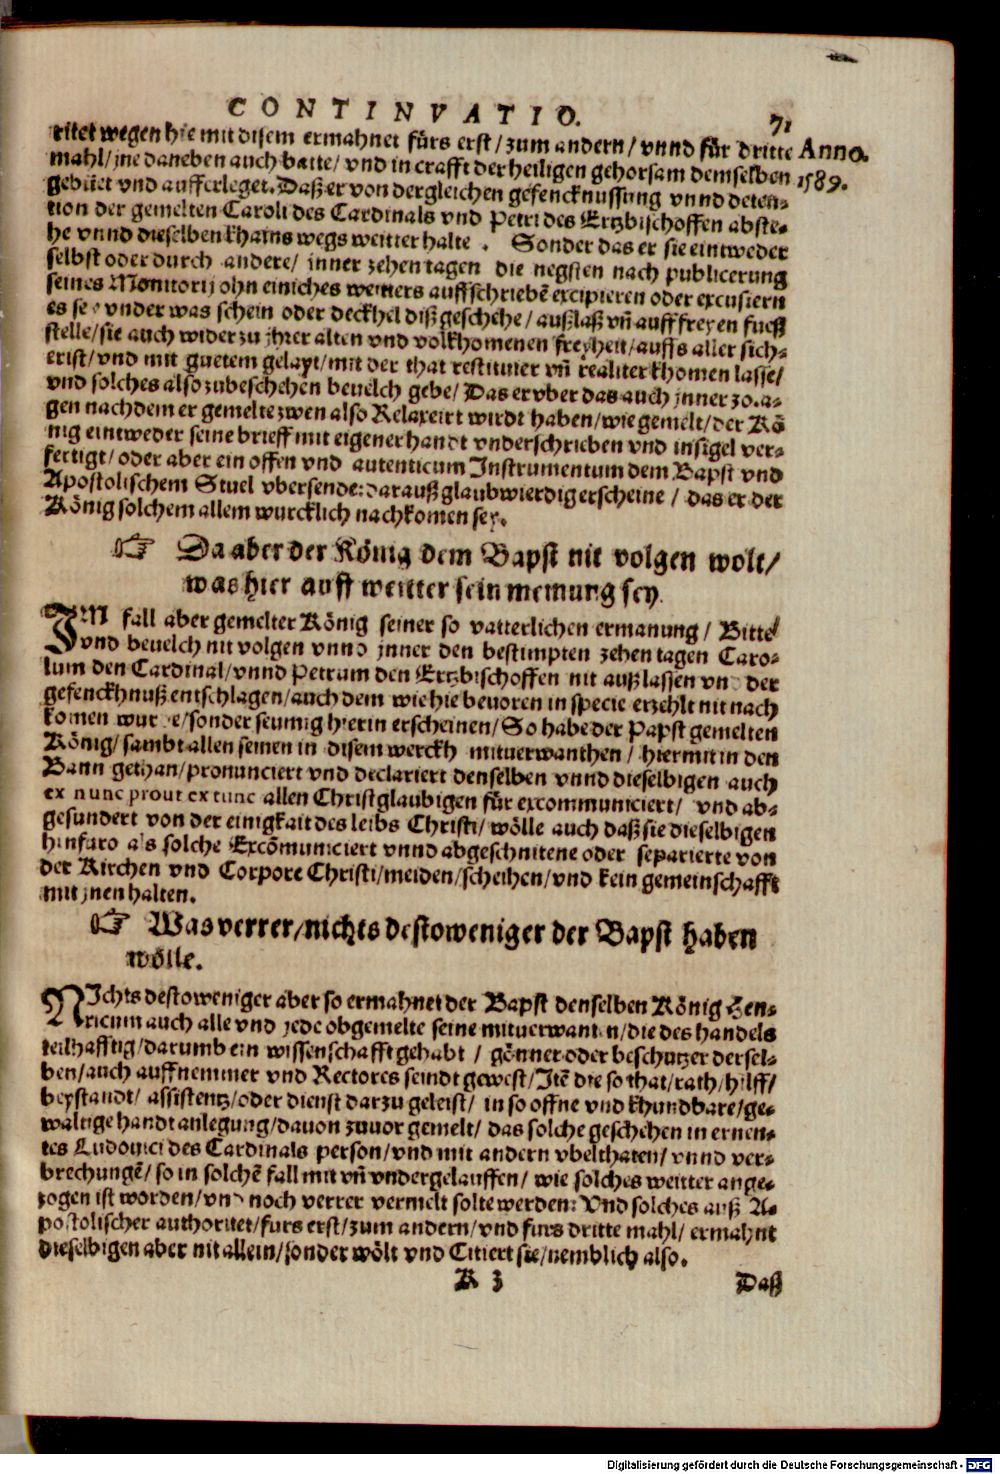 CONTINVATIO. 71
ritet wegen hie mit disem ermahnet fürs erst / zum andern / vnnd für dritte Anno.
mahl / jne daneben auch batte / vnd in crafft der heiligen gehorsam demselben 1589.
gebüet vnd aufferleget. Daß er von dergleichen gefencknussung vnnd deten-
tion der gemelten Caroli des Cardinals vnd Petri des Ertzbischoffen abste-
he vnnd dieselben khains wegs weitter halte . Sonder das er sie eintweder
selbst oder durch andere / jnner zehen tagen die negsten nach publicerung
seines Monitorij ohn einiches weitters auffschriebē excipieren oder excusiern
es sey vnder was schein oder deckhel diß geschehe / außlaß vñ auff freyen fueß
stelle / sie auch wider zu jhrer alten vnd volkhomenen freyheit / auffs aller sich-
erist / vnd mit guetem gelayt / mit der that restituier vñ realiter khomen lasse /
vnd solches also zubeschehen beuelch gebe / Das er vber das auch jnner 30. a-
gen nachdem er gemelte zwen also Relaxeirt wirdt haben / wie gemelt / der Kö
nig eintweder seine brieff mit eigener handt vnderschrieben vnd insigel ver-
fertigt / oder aber ein offen vnd autenticum Instrumentum dem Bapst vnd
Apostolischem Stuel vbersende: darauß glaubwierdig erscheine / das er der
König solchem allem wurcklich nachkomen sey.
☞ Da aber der König dem Bapst nit volgen wolt /
was hier auff weitter sein meinung sey.
IM fall aber gemelter König seiner so vatterlichen ermanung / Bitte
vnd beuelch nit volgen vnnd jnner den bestimpten zehen tagen Caro-
lum den Cardinal / vnnd Petrum den Ertzbischoffen nit außlassen vnd der
gefenckhnuß entschlagen / auch dem wie hie beuoren in specie erzehlt nit nach
komen wurde / sonder seumig hierin erscheinen / So habe der Papst gemelten
König / sambt allen seinen in disem werckh mituerwanthen / hiermit in den
Bann gethan / pronunciert vnd declariert denselben vnnd dieselbigen auch
ex nunc prout ex tunc allen Christglaubigen für excommuniciert / vnd ab-
gesundert von der einigkait des leibs Christi / wölle auch daß sie dieselbigen
hinfuro als solche Excōmuniciert vnnd abgeschnitene oder separierte von
der Kirchen vnd Corpore Christi / meiden / scheihen / vnd kein gemeinschafft
mit jnen halten.
☞ Was verrer / nichts destoweniger der Bapst haben
wölle.
NIchts destoweniger aber so ermahnet der Bapst denselben König Hen-
ricum auch alle vnd jede obgemelte seine mituerwanten / die des handels
teilhafftig / darumb ein wissenschafft gehabt / gönner oder beschutzer dersel-
ben / auch auffnemmer vnd Rectores seindt gewest / Itē die so that / rath / hilff /
beystandt / assistentz / oder dienst darzu geleist / in so offne vnd khundbare / ge-
waltige handt anlegung / dauon zuuor gemelt / das solche geschehen in ernen-
tes Ludouici des Cardinals person / vnd mit andern vbelthaten / vnnd ver-
brechungē / so in solchē fall mit vñ vndergelauffen / wie solches weitter ange-
zogen ist worden / vnd noch verrer vermelt solte werden: Vnd solches auß A-
postolischer authoritet / furs erst / zum andern / vnd furs dritte mahl / ermahnt
dieselbigen aber nit allein / sonder wölt vnd Citiert sie / nemblich also.
K 3 Daß
Digitalisierung gefördert durch die Deutsche Forschungsgemeinschaft - DFG